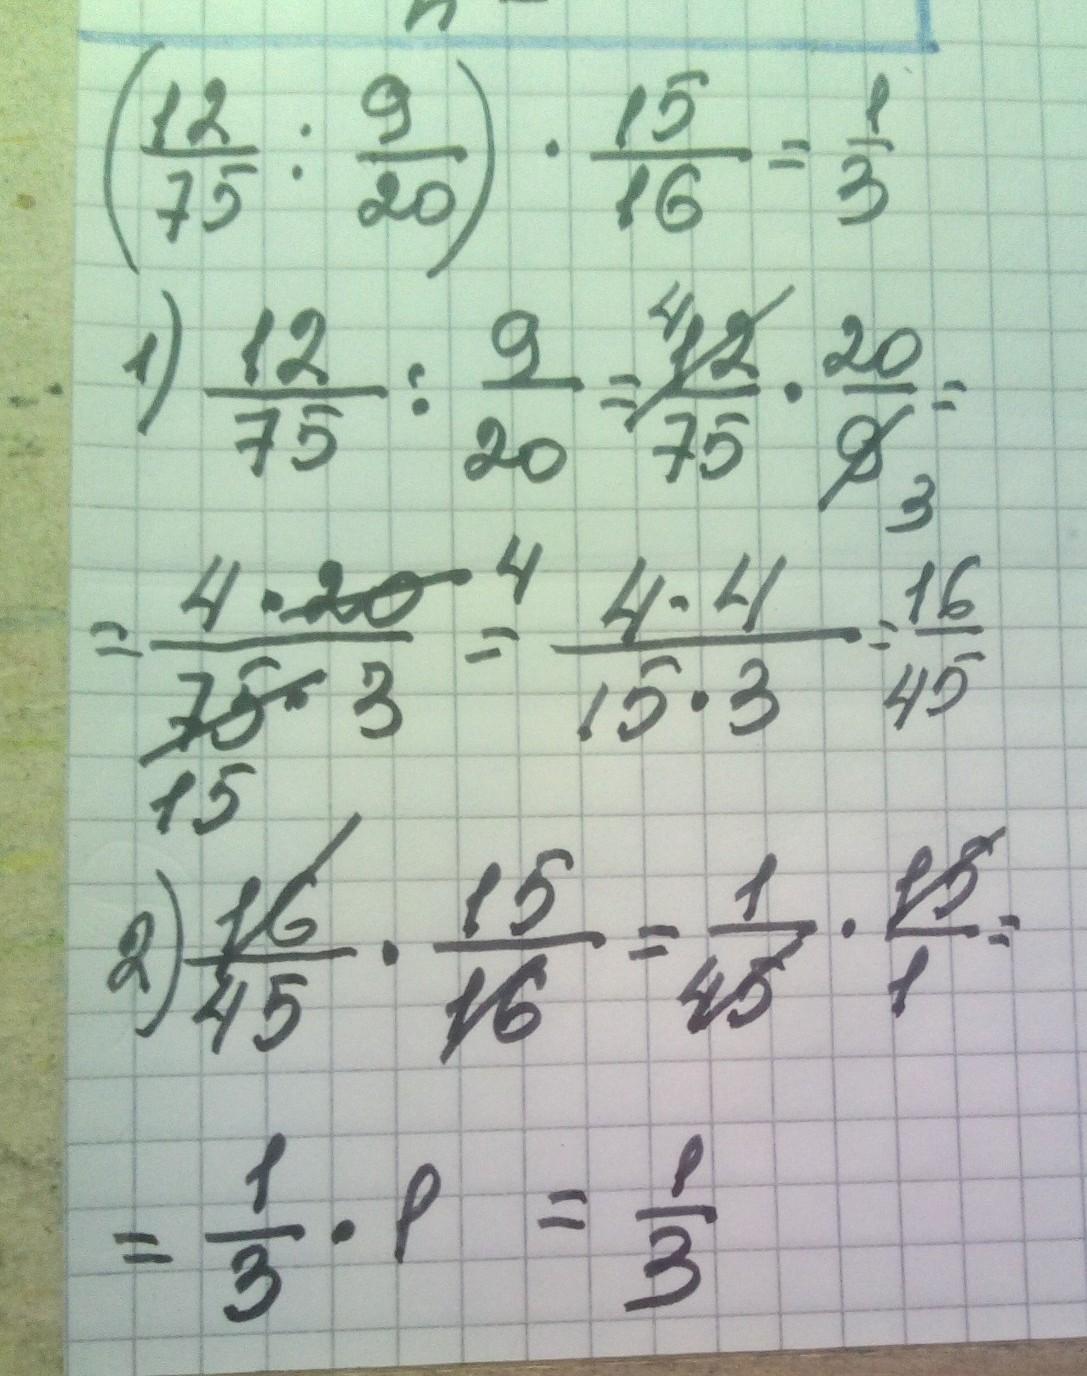 (12/75 : 9/20) · 15/16 = 1/3
1) 12/75 : 9/20 = 12/75 · 20/9 =
4
3
= 4 · 20 / 75 · 3 = 4 · 4 / 15 · 3 = 16/45
4
15
2) 16/45 · 15/16 = 1/45 · 15/1 =
= 1/3 · 1 = 1/3